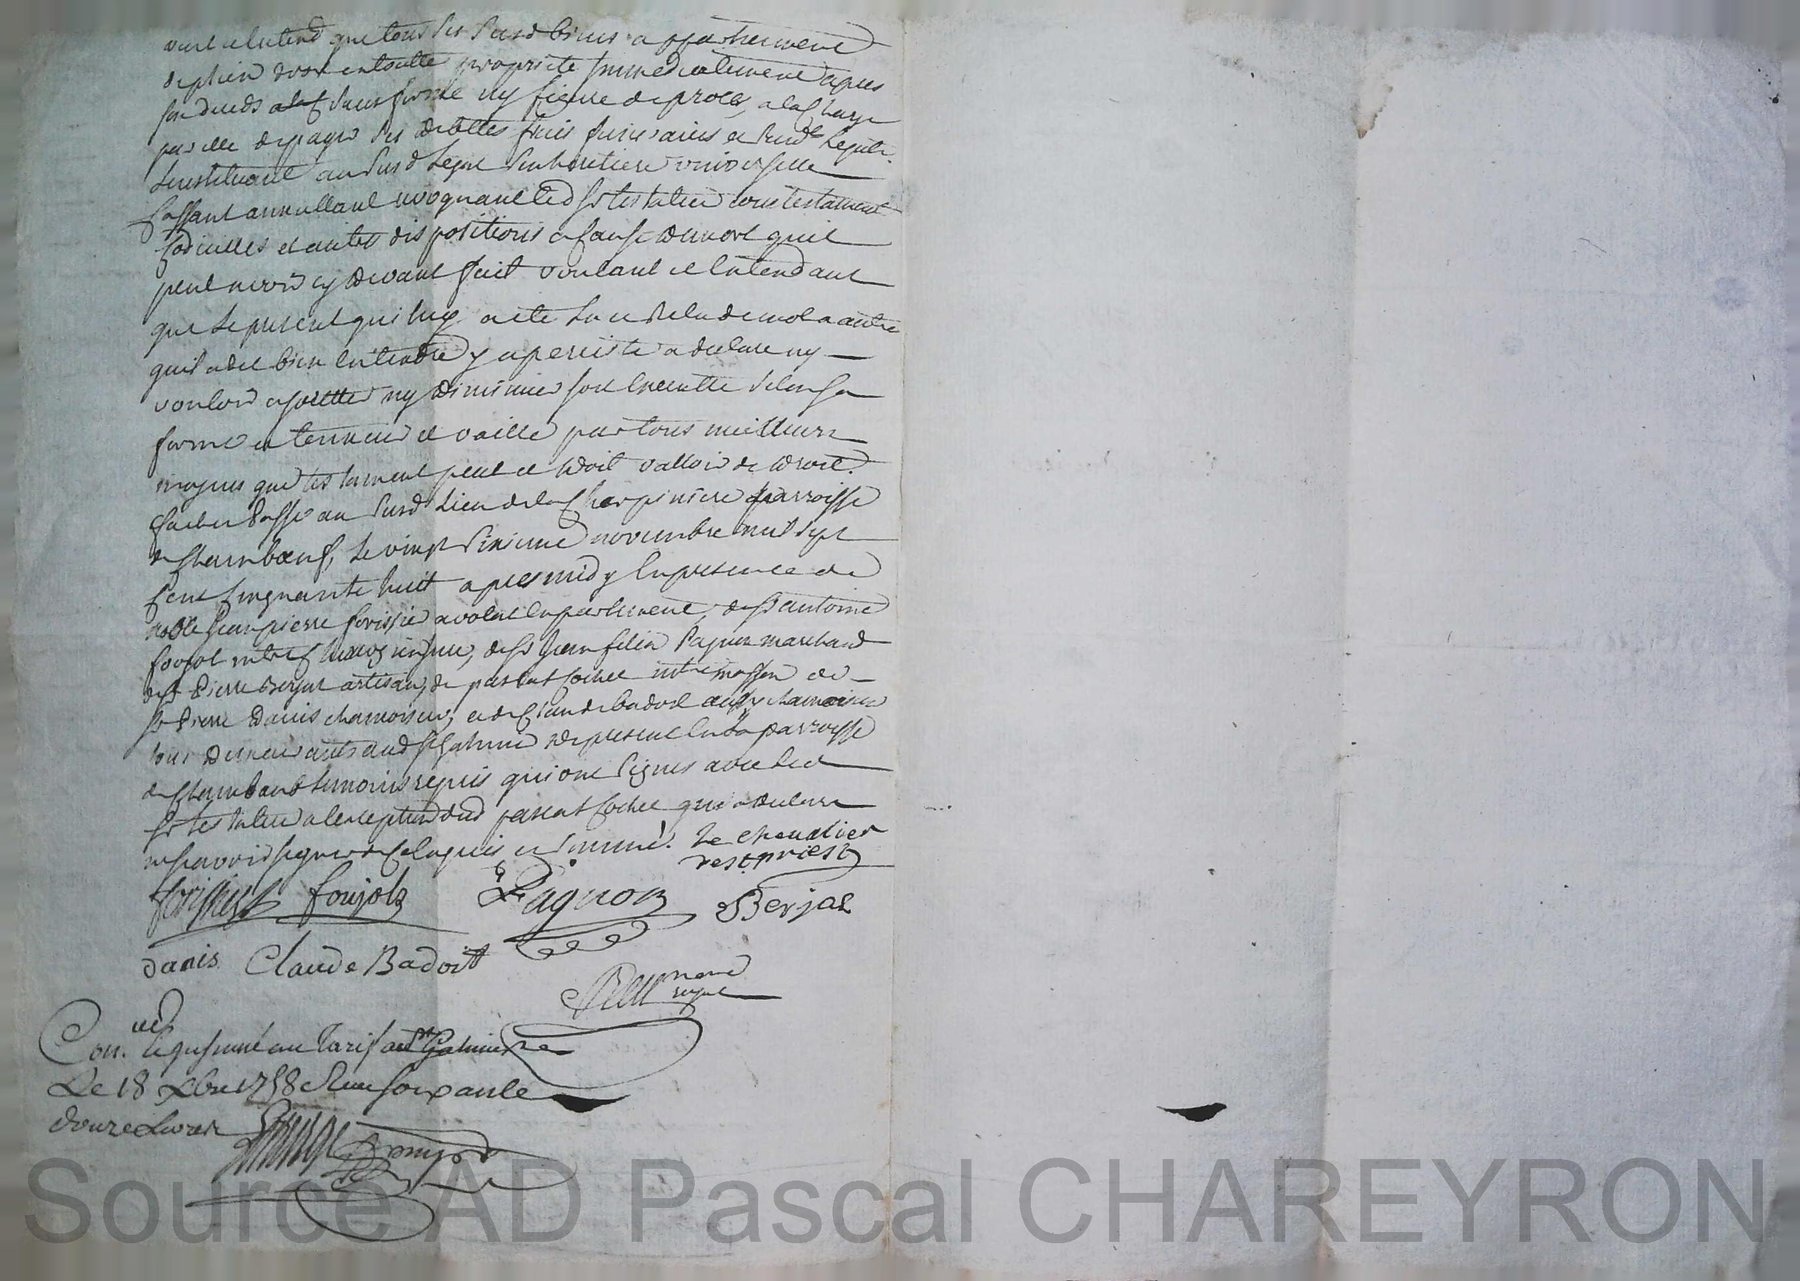 veut et entend que tous ses susd biens appartiennent
de plein droit en toutte proprieté immediatement apres
son deceds sans forme ny figure de proces, a la charge
par elle de payer ses debttes frais funeraires et susd legats
Linstituant au susd legat son heritiere universelle
Cassant annullant revoquant led sr testateur tous testament
Codicilles et autres dispositions a cause de mort quil
peut avoir cy devant fait voulant et entendant
que le present qui luy a eté lu et relu de mot a autre
quil a dit bien entendre y a persisté a declaré ny
vouloir ajoutter ny diminuer soit executté selon sa
forme et teneur et vaille par tous meilleurs
moyens que testament peut et doit valloir de droit.
fait et passé au susd lieu de la Charpiniere parroisse
de Chambœuf, le vingt sixieme novembre mil sept
Cent Cinquante huit apres midy En presence de
noble Jean pierre forissier avocat En parlement, de sr antoine
foujol me Chirurgien, de sr Jean felix Pagnon marchand
de sr Pierre Berjat artisan, de parcat cochet me masson de
sr Pierre Danis chamoiseur, et de Claude badoit aussy chamoiseur
tous demeurants aud st Galmier de present En la parroisse
de Chambœuf temoins requis qui ont signés avec led
sr testateur a lexception dud parcat cochet qui a declaré
ne scavoir signer de ce enquis et sommé. Le chevalier
de st priest
forissier foujols Pagnon Berjat
danis Claude Badoit
nore
royal
Con. le au tarif a st Galmier
Le 18 Xbre 1758 Reçu soixante
douze Livres
Source AD Pascal CHAREYRON